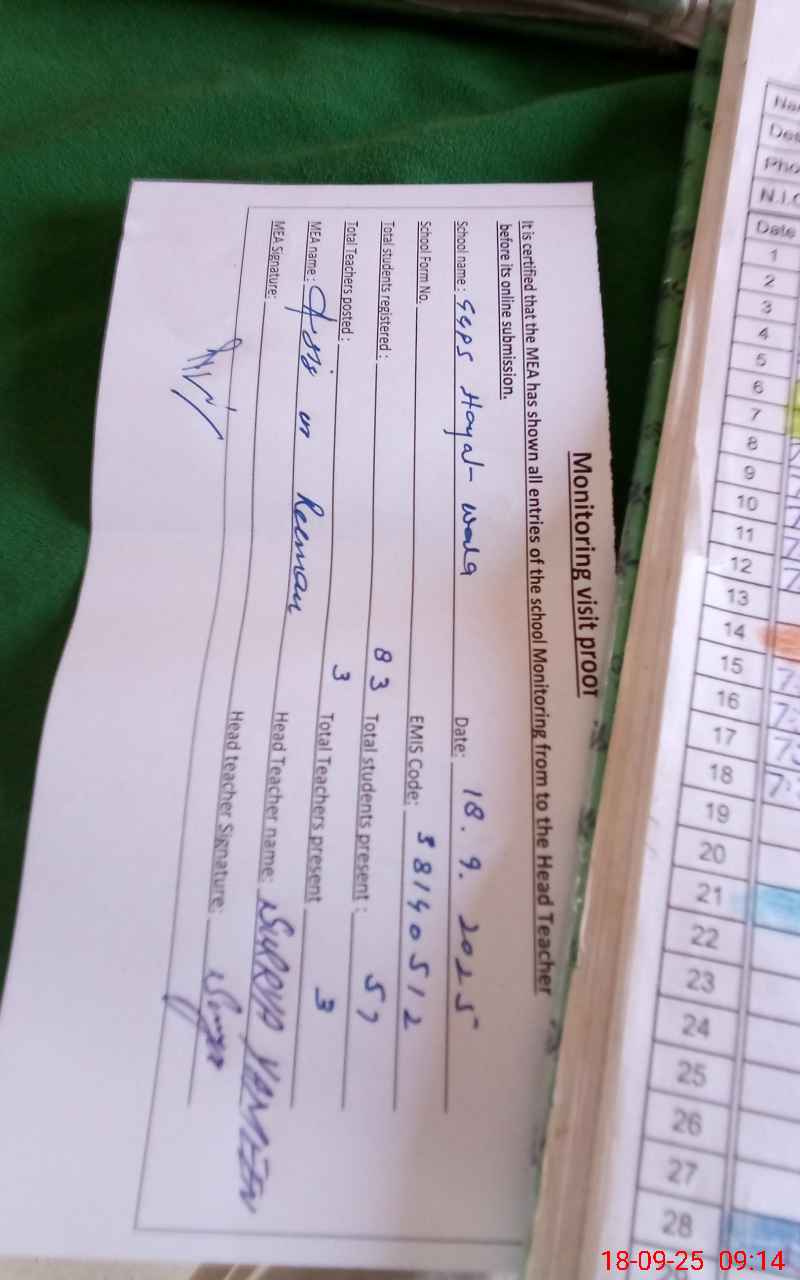 Monitoring visit proof
It is certified that the MEA has shown all entries of the school Monitoring from to the Head Teacher
before its online submission.
School name: GGPS Hayat-wala Date: 18.9.2025
School Form No. EMIS Code: 38140512
Total students registered: 83 Total students present: 57
Total Teachers posted: 3 Total Teachers present 3
MEA name: ur Reeman Head Teacher name: SURRYA YASMEEN
MEA Signature: Head teacher Signature:
Date
1
2
3
4
5
6
7
8
9
10
11
12
13
14
15
16
17
18
19
20
21
22
23
24
25
26
27
28
18-09-25 09:14